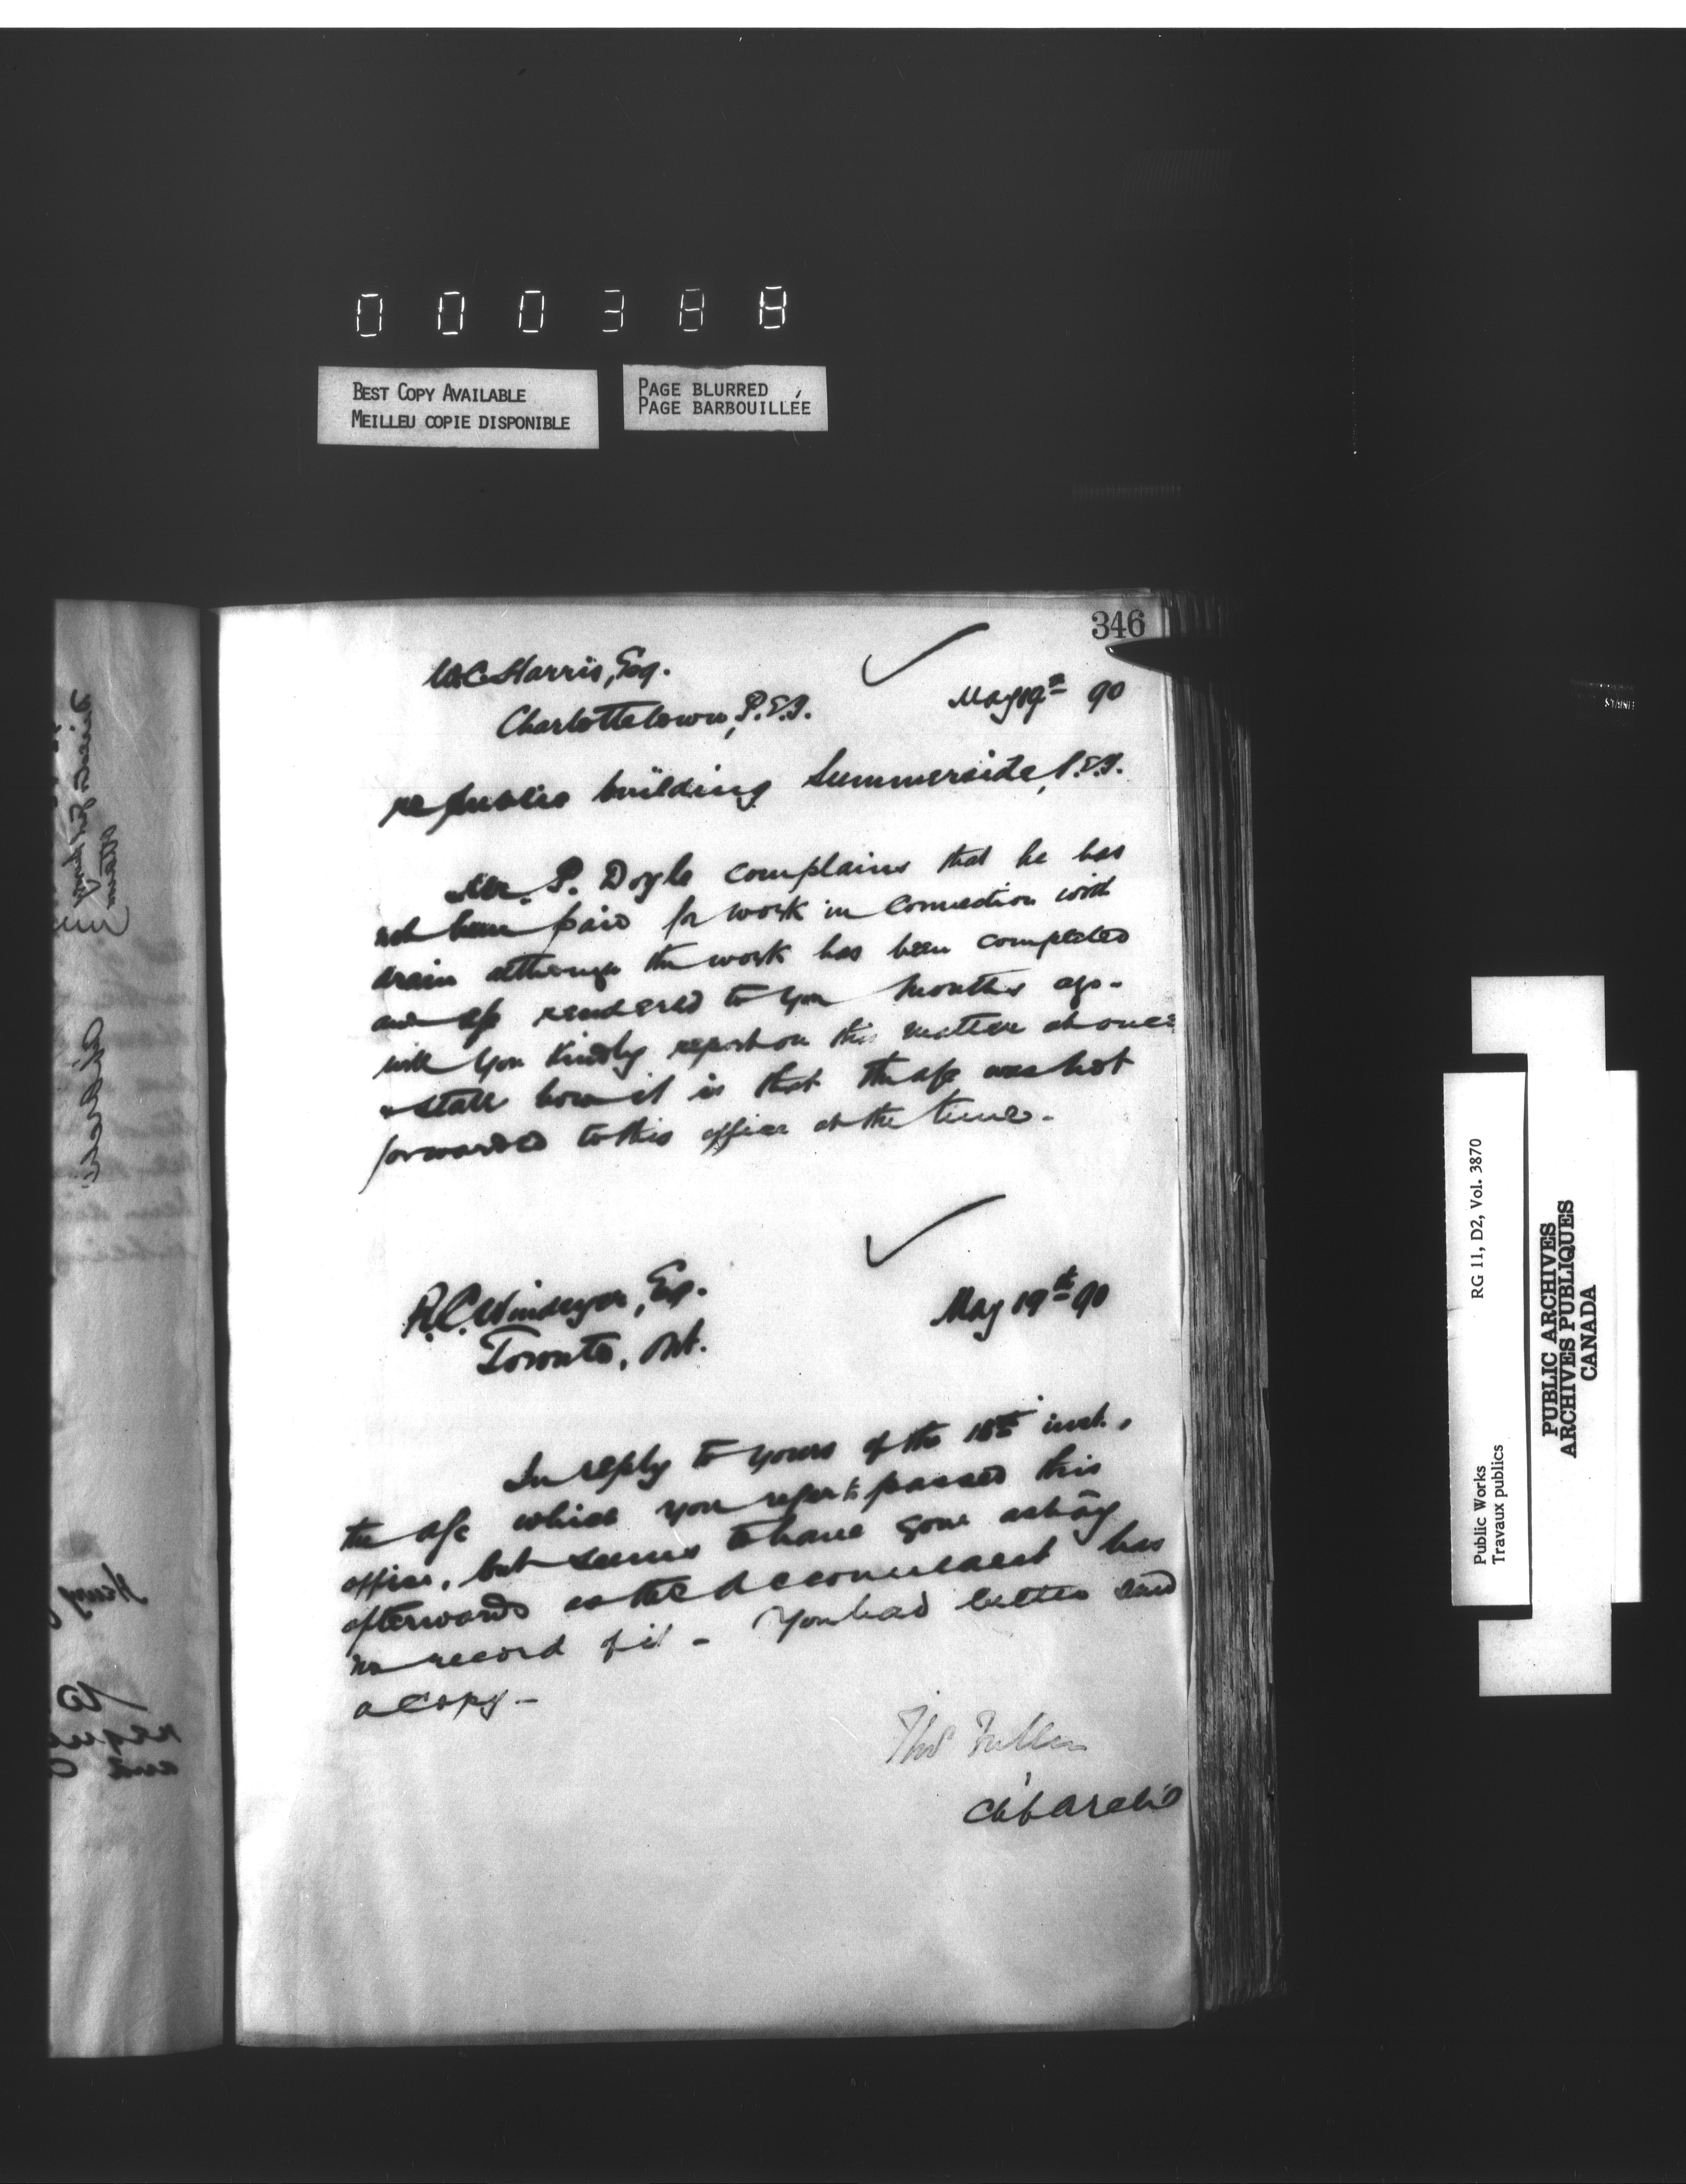 000388
BEST COPY AVAILABLE
MEILLEU COPIE DISPONIBLE
PAGE BLURRED
PAGE BARBOUILLÉE
346
W.C. Harris, Esq.
May 19th 90
Charlottetown, P.E.I.
re public building Summerside, P.E.I.
Mr. P. Doyle complains that he has
not been paid for work in connection with
drain although the work has been completed
and a/c rendered to you months ago.
will you kindly report on this matter at once
& state how it is that the a/c was not
forwarded to this office at the time.
R.C. Windeyer, Esq.
May 19th 90
Toronto, Ont.
In reply to yours of the 18th inst.,
the a/c which you refer to passed this
office, but seems to have gone astray
afterwards as the Accountant has
no record of it - You had better send
a copy -
Thos Fuller
Ch'f Arch't
RG 11, D2, Vol. 3870
Public Works
Travaux publics
PUBLIC ARCHIVES
ARCHIVES PUBLIQUES
CANADA